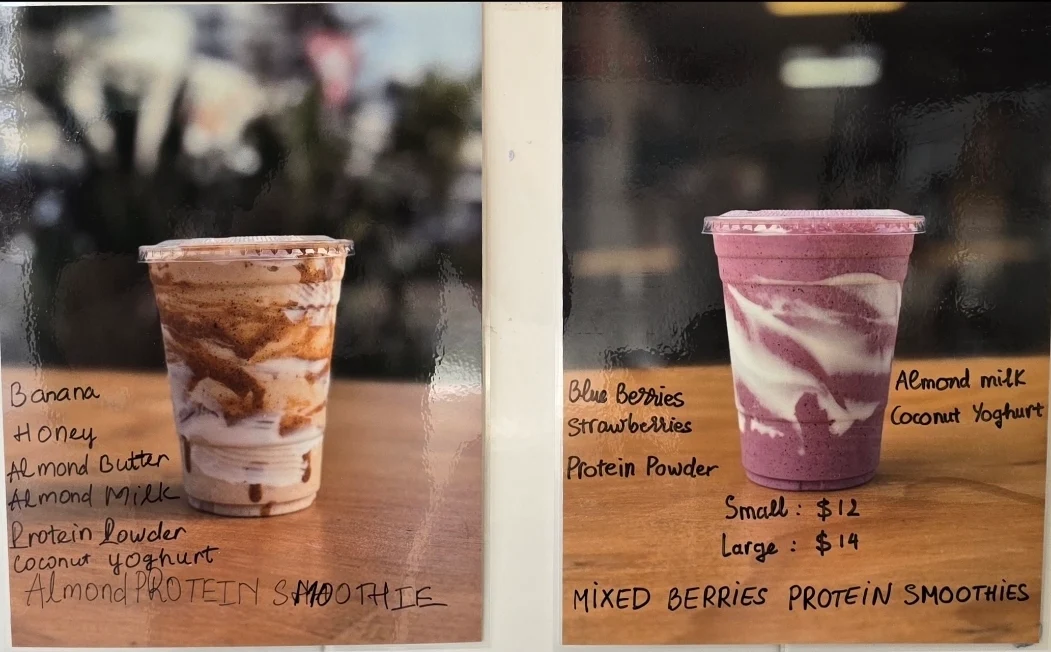 Banana
Honey
Almond Butter
Almond Milk
Protein Powder
Coconut yoghurt
Almond PROTEIN SMOOTHIE
Blue Berries
Strawberries
Protein Powder
Almond milk
Coconut Yoghurt
Small : $12
Large : $14
MIXED BERRIES PROTEIN SMOOTHIES